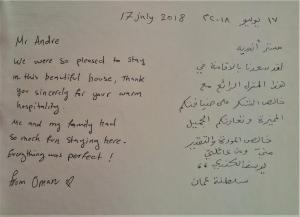 17 July 2018
Mr Andre
We were so pleased to stay
in this beautiful house, Thank
you sincerely for your warm
hospitality.
Me and my family had
so much fun staying here.
Everything was perfect !
from Oman
١٧ يوليو ٢٠١٨
مستر أندريه
لقد سعدنا بالإقامة في
هذا المنزل الرائع مع
خالص الشكر على ضيافتكم
وتعاونكم الجميل
خالص المودة والتقدير
مني ومن عائلتي
يوسف
سلطنة عمان